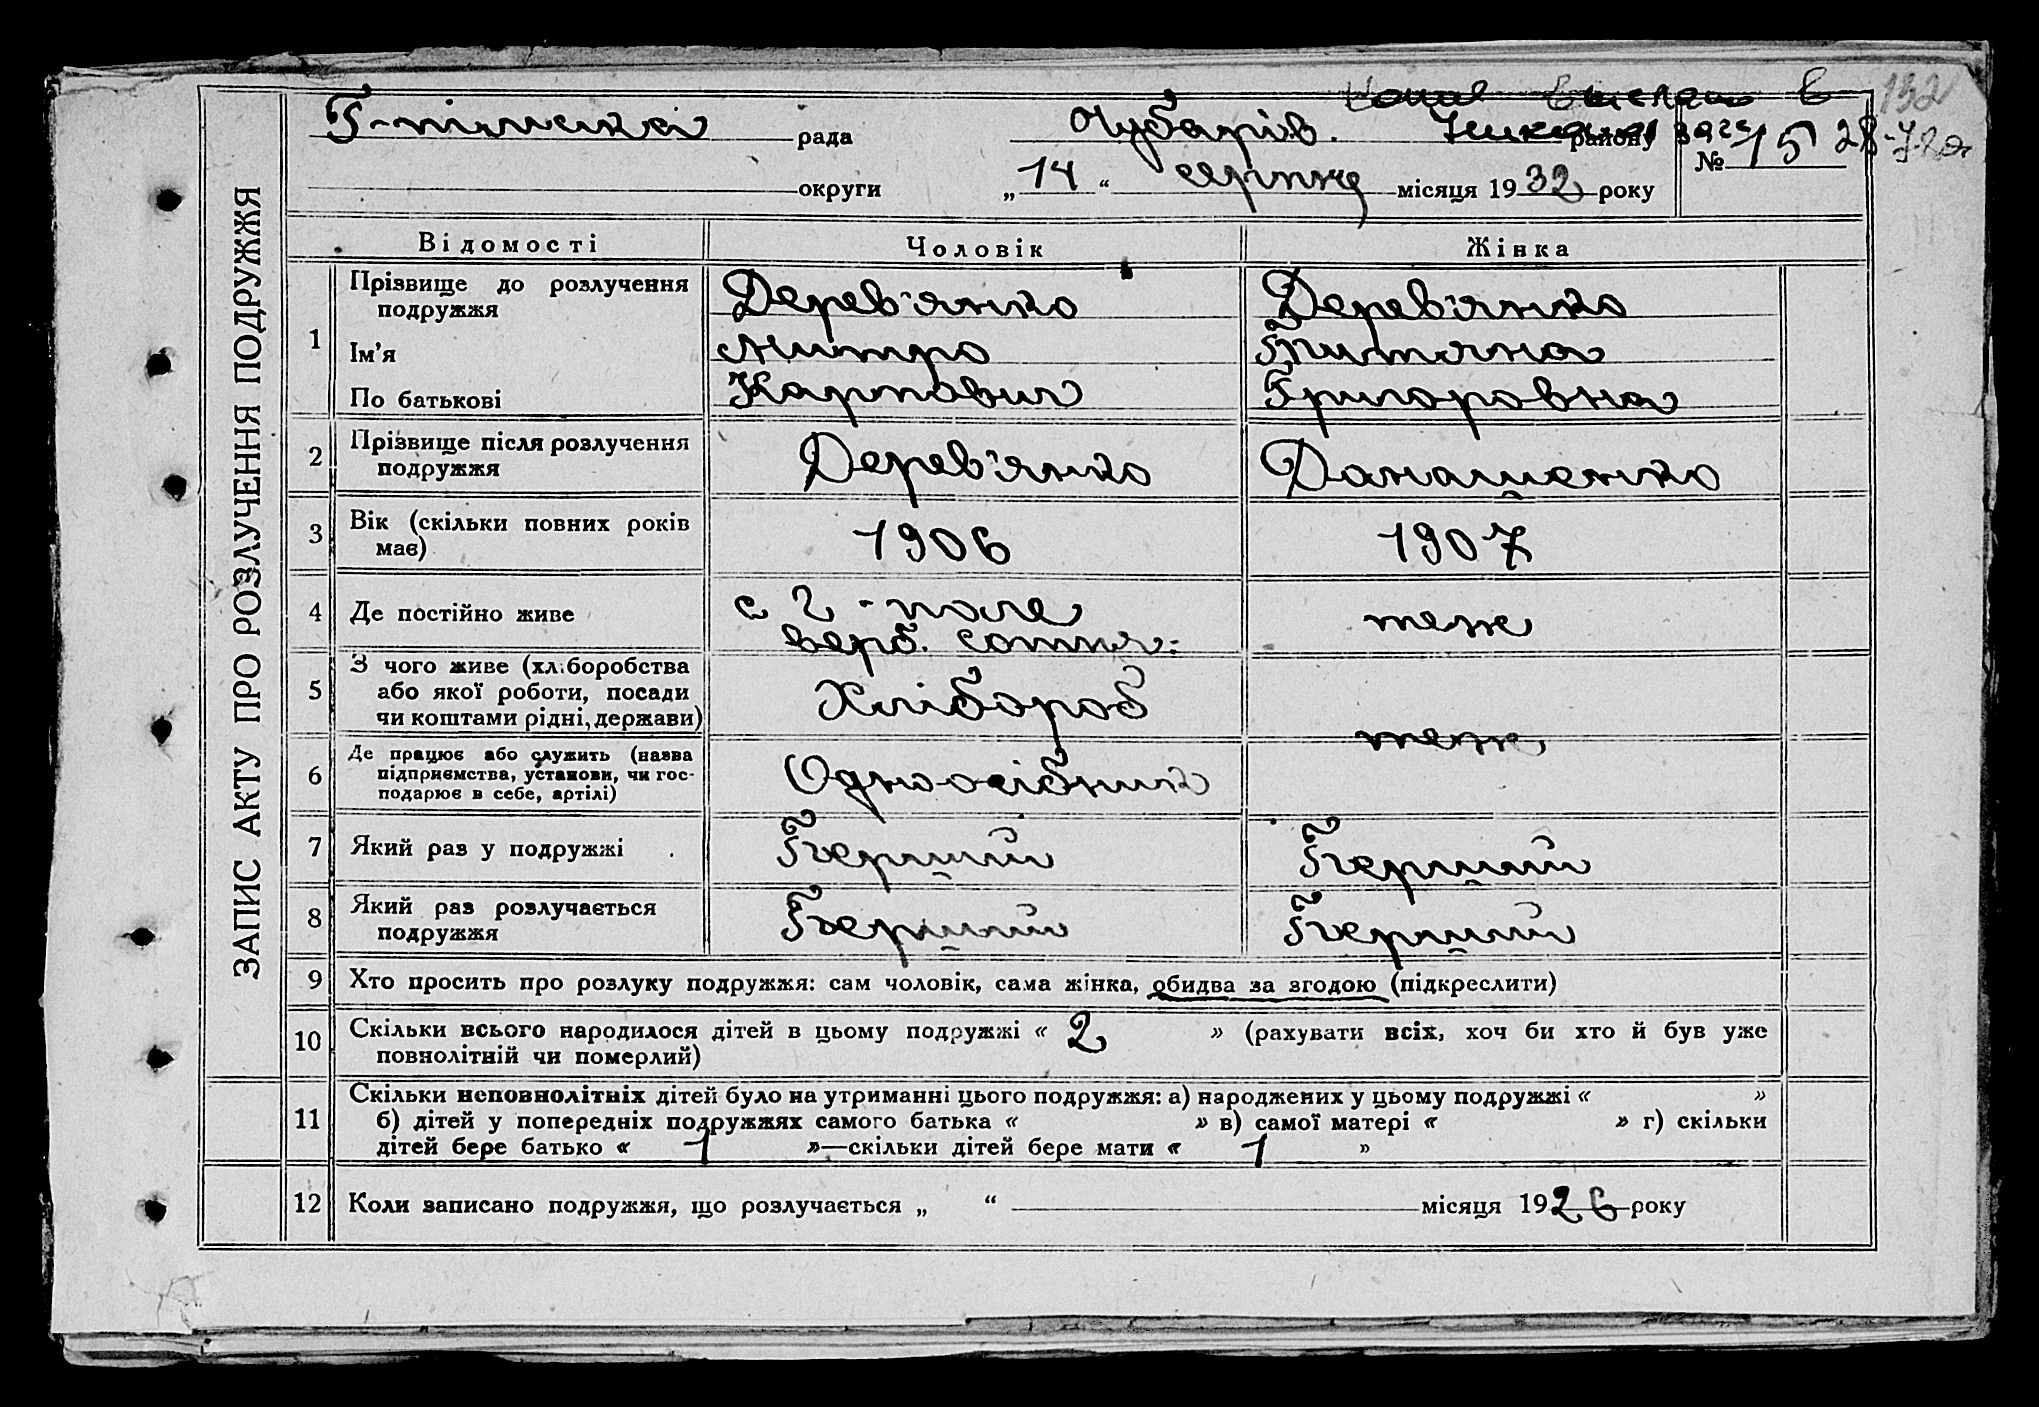 132
Г-пільська рада Чубарів. району
№ 15
округи „14“ серпня місяця 1932 року
ЗАПИС АКТУ ПРО РОЗЛУЧЕННЯ ПОДРУЖЖЯ
Відомості Чоловік Жінка
1 Прізвище до розлучення подружжя Дерев'янко Дерев'янко
Ім'я Митро
По батькові Карпович Григоровна
2 Прізвище після розлучення
подружжя Дерев'янко Данашенко
3 Вік (скільки повних років
має) 1906 1907
4 Де постійно живе с Г-поле теж
верб. сотня:
5 З чого живе (хліборобства
або якої роботи, посади
чи коштами рідні, держави) Хлібороб теж
6 Де працює або служить (назва
підприємства, установи, чи гос-
подарює в себе, артілі) Одноосібник
7 Який раз у подружжі Перший Перший
8 Який раз розлучається
подружжя Перший Перший
9 Хто просить про розлуку подружжя: сам чоловік, сама жінка, обидва за згодою (підкреслити)
10 Скільки всього народилося дітей в цьому подружжі « 2 » (рахувати всіх, хоч би хто й був уже
повнолітній чи померлий)
11 Скільки неповнолітніх дітей було на утриманні цього подружжя: а) народжених у цьому подружжі « »
б) дітей у попередніх подружжях самого батька « » в) самої матері « » г) скільки
дітей бере батько « 1 »—скільки дітей бере мати « 1 »
12 Коли записано подружжя, що розлучається „ “ місяця 1926 року